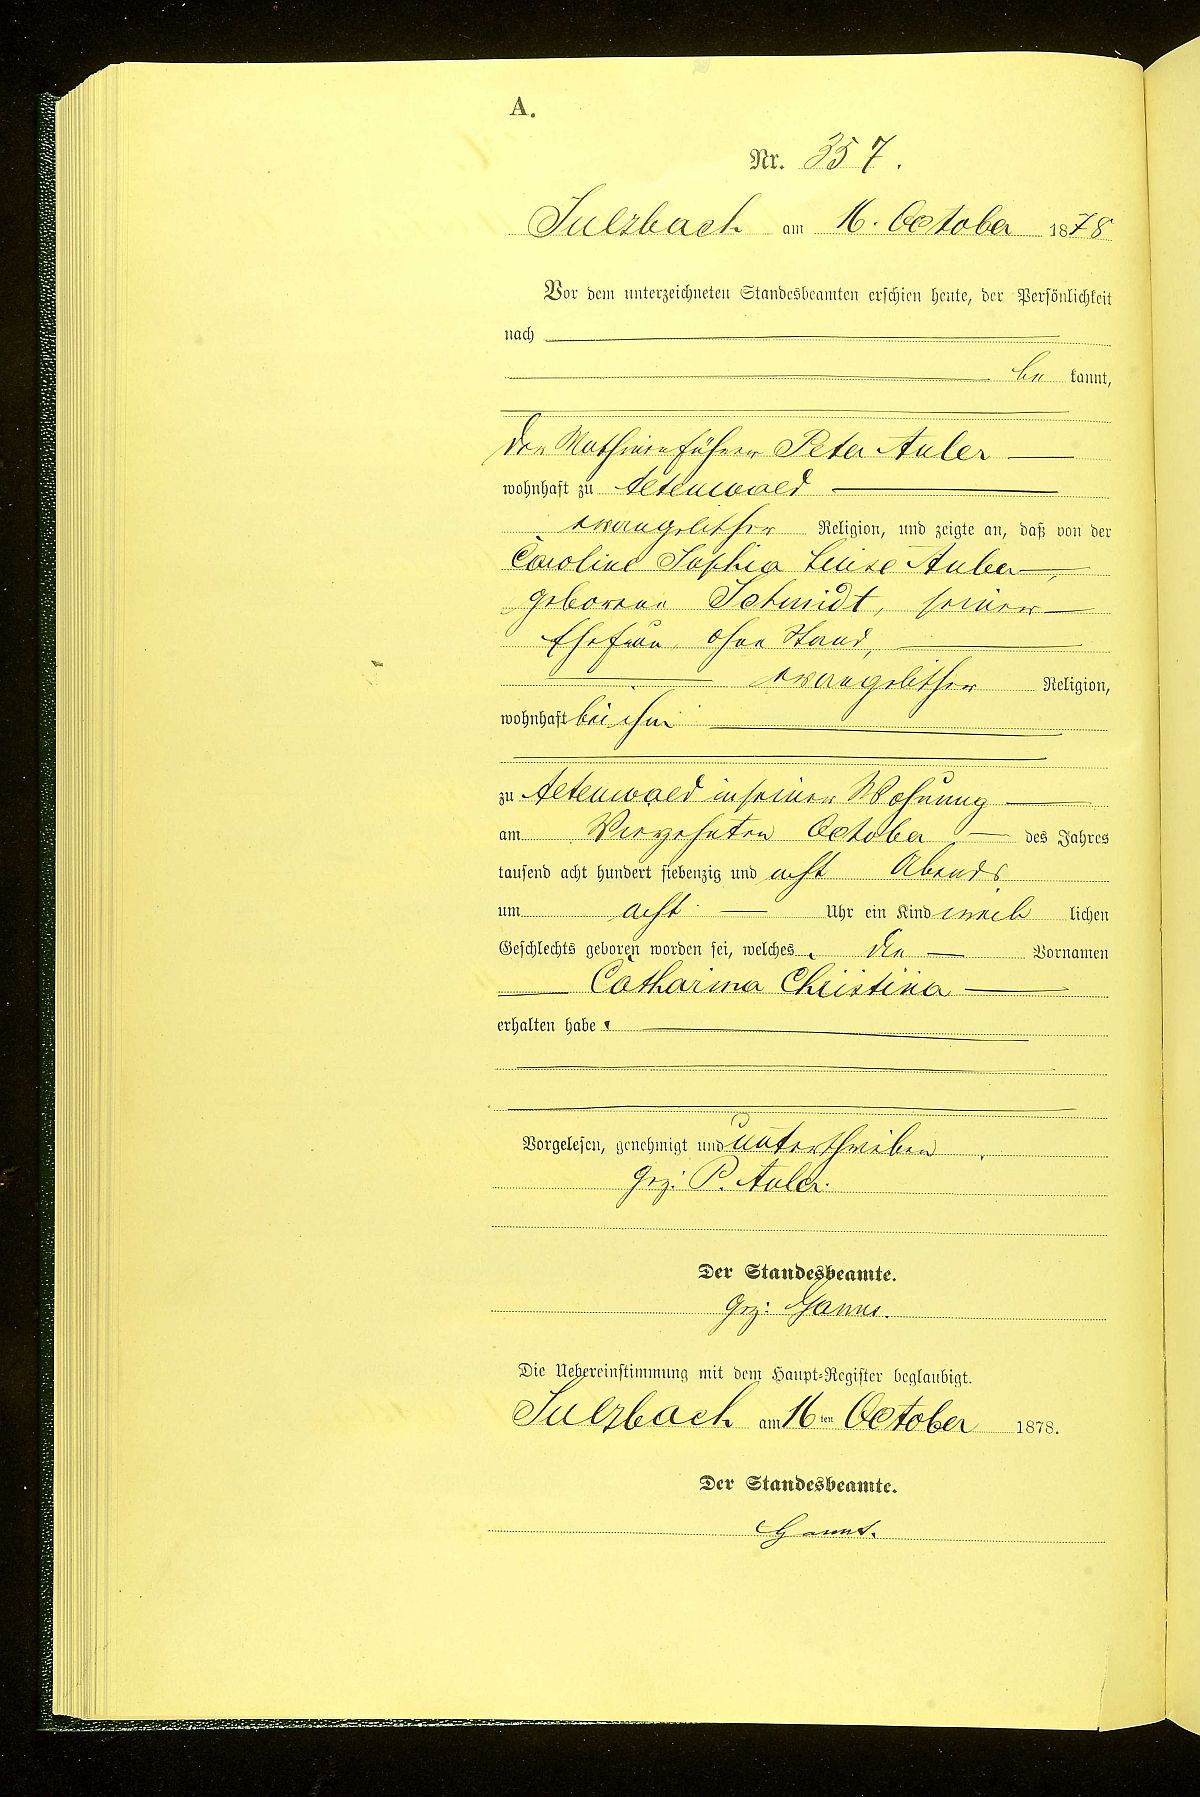 A.
Nr. 357.
Sulzbach am 16. October 1878
Vor dem unterzeichneten Standesbeamten erschien heute, der Persönlichkeit
nach
be kannt,
der Maschinenführer Peter Auler
wohnhaft zu Altenwald
evangelischer Religion, und zeigte an, daß von der
Caroline Sophia Luise Auler,
geborene Schmidt, seiner
Ehefrau, ohne Stand,
evangelischer Religion,
wohnhaft bei ihm
zu Altenwald in seiner Wohnung
am Vierzehnten October des Jahres
tausend acht hundert siebenzig und acht Abends
um acht Uhr ein Kind weib lichen
Geschlechts geboren worden sei, welches die Vornamen
Catharina Christina
erhalten habe.
Vorgelesen, genehmigt und unterschrieben.
Gez: P. Auler.
Der Standesbeamte.
Gez:
Die Uebereinstimmung mit dem Haupt-Register beglaubigt.
Sulzbach am 16ten October 1878.
Der Standesbeamte.